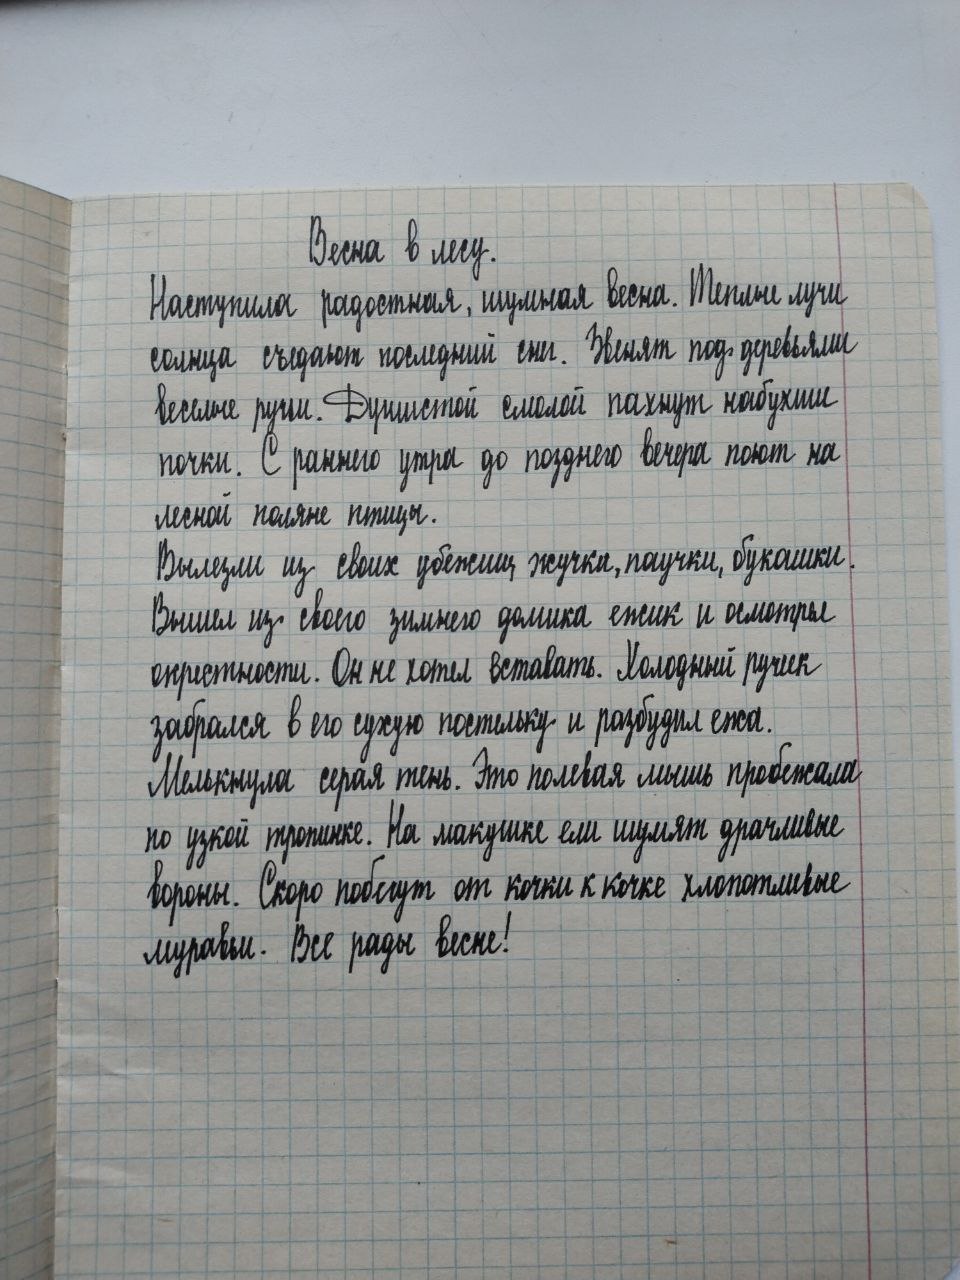 Весна в лесу.
Наступила радостная, шумная весна. Теплые лучи
солнца съедают последний снег. Звенят под деревьями
веселые ручьи. Душистой смолой пахнут набухшие
почки. С раннего утра до позднего вечера поют на
лесной поляне птицы.
Вылезли из своих убежищ жучки, паучки, букашки.
Вышел из своего зимнего домика ежик и осмотрел
окрестности. Он не хотел вставать. Холодный ручеек
забрался в его сухую постельку и разбудил ежа.
Мелькнула серая тень. Это полевая мышь пробежала
по узкой тропинке. На макушке ели шумят драчливые
вороны. Скоро побегут от кочки к кочке хлопотливые
муравьи. Все рады весне!